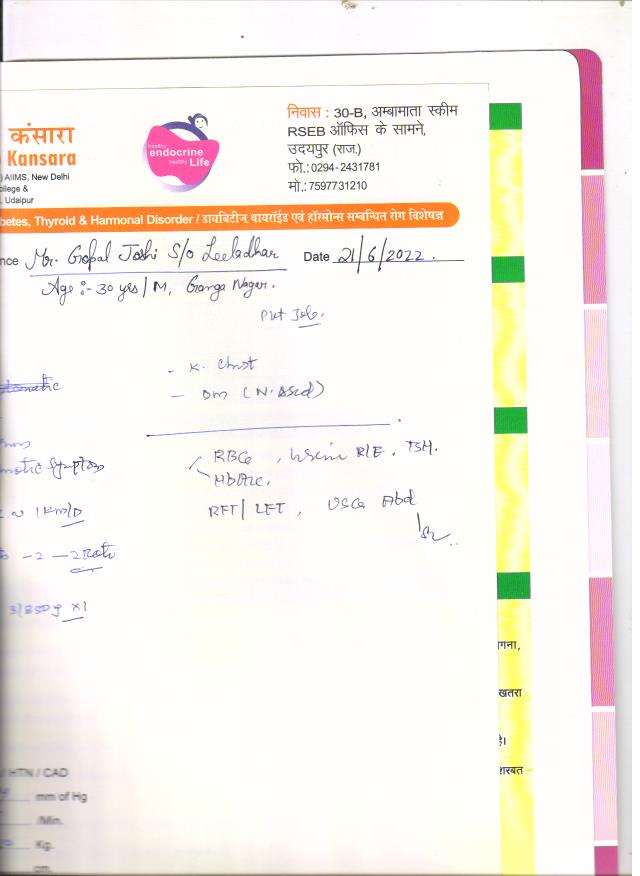 कंसारा
Kansara
AIIMS, New Delhi
ollege &
, Udaipur
healthy
endocrine
healthy Life
निवास : 30-B, अम्बामाता स्कीम
RSEB ऑफिस के सामने,
उदयपुर (राज.)
फो.:0294-2431781
मो.:7597731210
betes, Thyroid & Harmonal Disorder / डायबिटीज, थायरॉईड एवं हॉरमोन्स सम्बन्धित रोग विशेषज्ञ
nce Mr. Gopal Joshi S/o Leeladhar Date 21/6/2022.
Age :- 30 yrs/M, Ganga Nagar.
Pvt Job.
- DM
RBG, Urine R/E, TSH.
HbA1c.
RFT/LFT, USG Abd
~ 1 Km/D
-2 - 2 Roti
x1
/ HTN / CAD
mm of Hg
/Min.
Kg.
cm.
गना,
खतरा
है।
शरबत